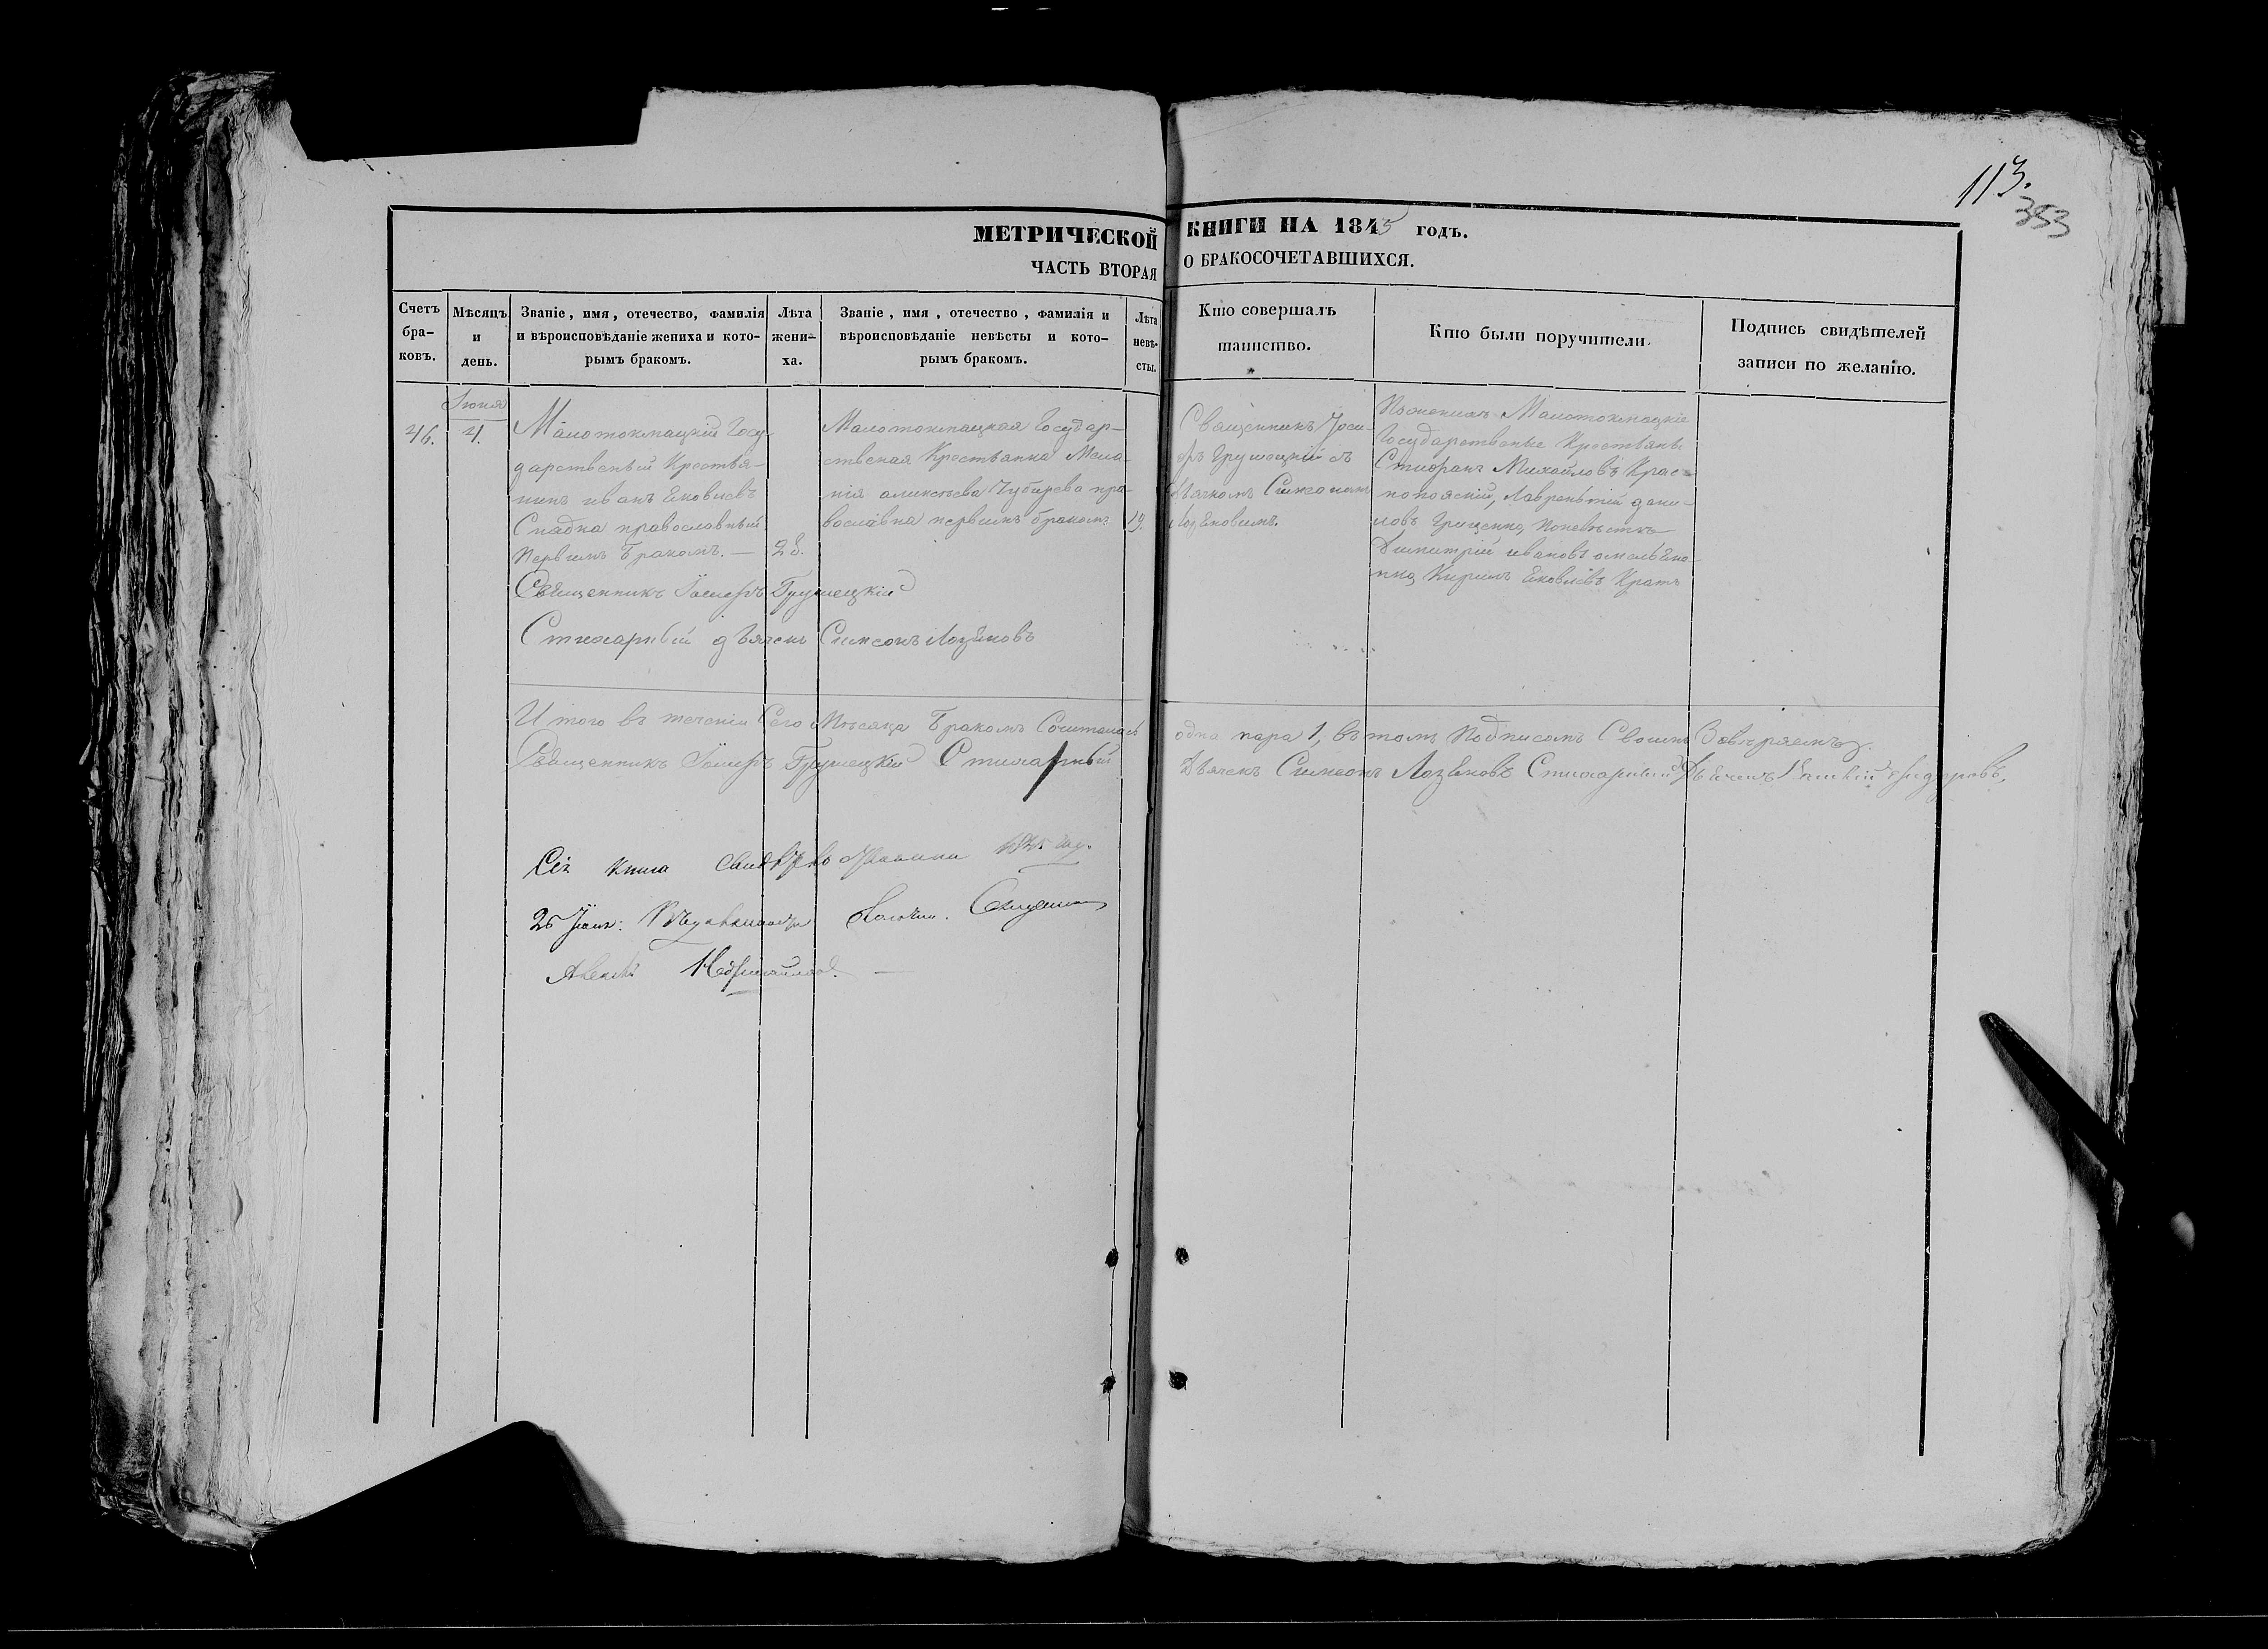 113.
353
МЕТРИЧЕСКОЙ КНИГИ НА 1845 годъ.
ЧАСТЬ ВТОРАЯ О БРАКОСОЧЕТАВШИХСЯ.
Счетъ бра-
ковъ.
Мѣсяцъ
и
день.
Званіе, имя, отечество, фамилія
и вѣроисповѣданіе жениха и кото-
рымъ бракомъ.
Лѣта
жени-
ха.
Званіе, имя, отечество, фамилія и
вѣроисповѣданіе невѣсты и кото-
рымъ бракомъ.
Лѣта
невѣ-
сты.
Кто совершалъ
таинство.
Кто были поручители.
Подпись свидѣтелей
записи по желанію.
46.
Іюня
4.
Малотокмацкій Госу-
дарственый Крестья-
нинъ иванъ Яковлевъ
Сладка православный
Первымъ Бракомъ. —
28.
Малотокмацкая Государ-
ственая Крестьянка Мела-
нія аликсѣева Чубарева пра-
вославна первымъ бракомъ
19.
Священникъ Іоси-
фъ Грушецкій съ
Дьячкомъ Симеономъ
Лозяновымъ.
Поженихъ Малотокмацкіе
Государственые Крестьяне
Стифанъ Михайловъ Крас-
нопояскій, Лаврентій дани-
ловъ Грищенко, Поневѣсткѣ
Димитрій ивановъ омельяне-
нко, Кирилъ Яковлѣвъ Кратъ
Священникъ Іосифъ Грушецкій
Стихарный дьячекъ Симеонъ Лозяновъ
И того въ теченіи Сего Мѣсяца Бракомъ Сочиталась одна пара 1, въ томъ Подписомъ Своимъ Завѣряемъ.
Священникъ Іосифъ Грушецкій Стихарный Дьячекъ Симеонъ Лозяновъ Стихарный Дьячекъ
Сія книга
26 Іюня: